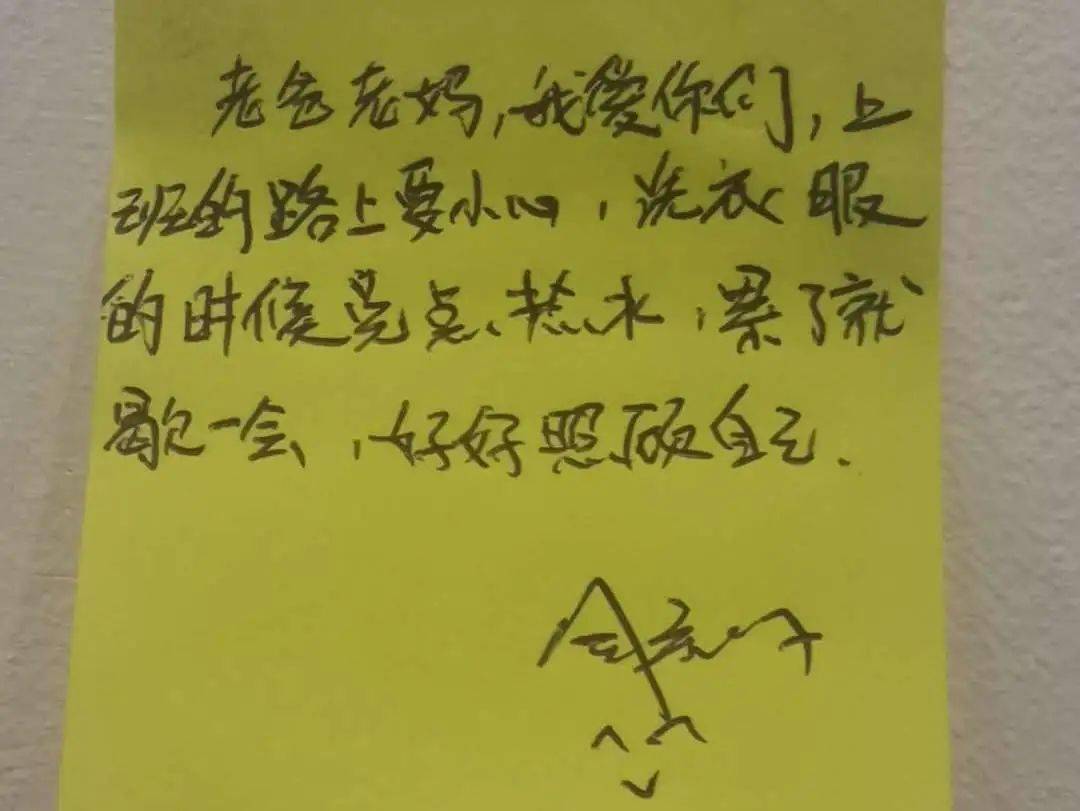 老爸老妈,我爱你们,上
班的路上要小心,洗衣服
的时候兑点热水,累了就
歇一会,好好照顾自己.